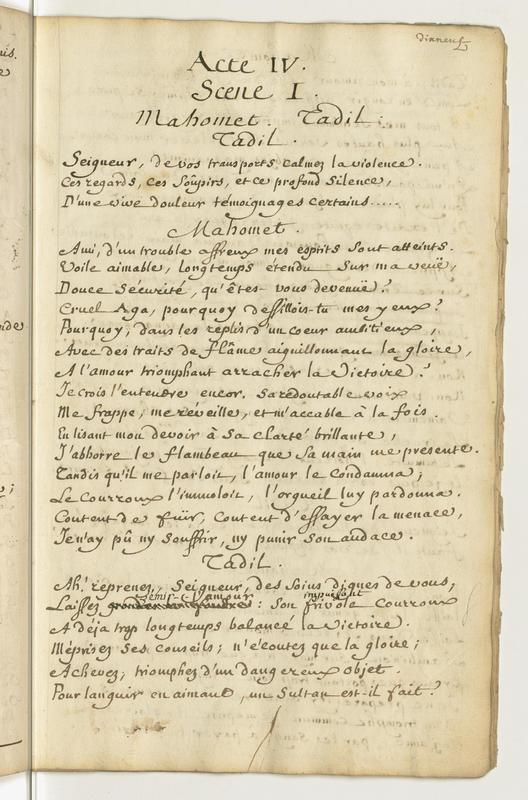 dixneuf
Acte IV.
Scene I.
Mahomet. Tadil.
Tadil.
Seigneur, de vos transports calmez la violence.
Ces regards, ces Soûpirs, et ce profond Silence,
D'une vive douleur témoignages certains.....
Mahomet.
Ami, d'un trouble affreux mes esprits Sont atteints.
Voile aimable, longtemps étendu Sur ma veüe,
Douce Sécurité, qu'êtes-vous devenuë?
Cruel Aga, pourquoy dessillois-tu mes yeux?
Pourquoy, dans les replis d'un coeur ambitieux,
Avec des traits de flâme aiguillonnant la gloire,
A l'amour triomphant arracher la Victoire?
Je crois l'entendre encor. Sa redoutable voix
Me frappe, me réveille, et m'accable à la fois.
En lisant mon devoir à Sa clarté brillante,
J'abhorre le flambeau que Sa main me présente.
Tandis qu'il me parloit, l'amour le Condamna;
Le Courroux l'immoloit, l'orgueil luy pardonna.
Content de fuïr, Content d'essayer la menace,
Je n'ay pû ny Souffrir, ny punir Son audace.
Tadil.
Ah! reprenez, Seigneur, des Soins dignes de vous;
gémir l'amour impuissant
Laissez : Son frivole Courroux
A déja trop longtemps balancé la Victoire.
Méprisez Ses Conseils; n'écoutez que la gloire;
Achevez; triomphez d'un dangereux objet.
Pour languir en aimant, un Sultan est-il fait?